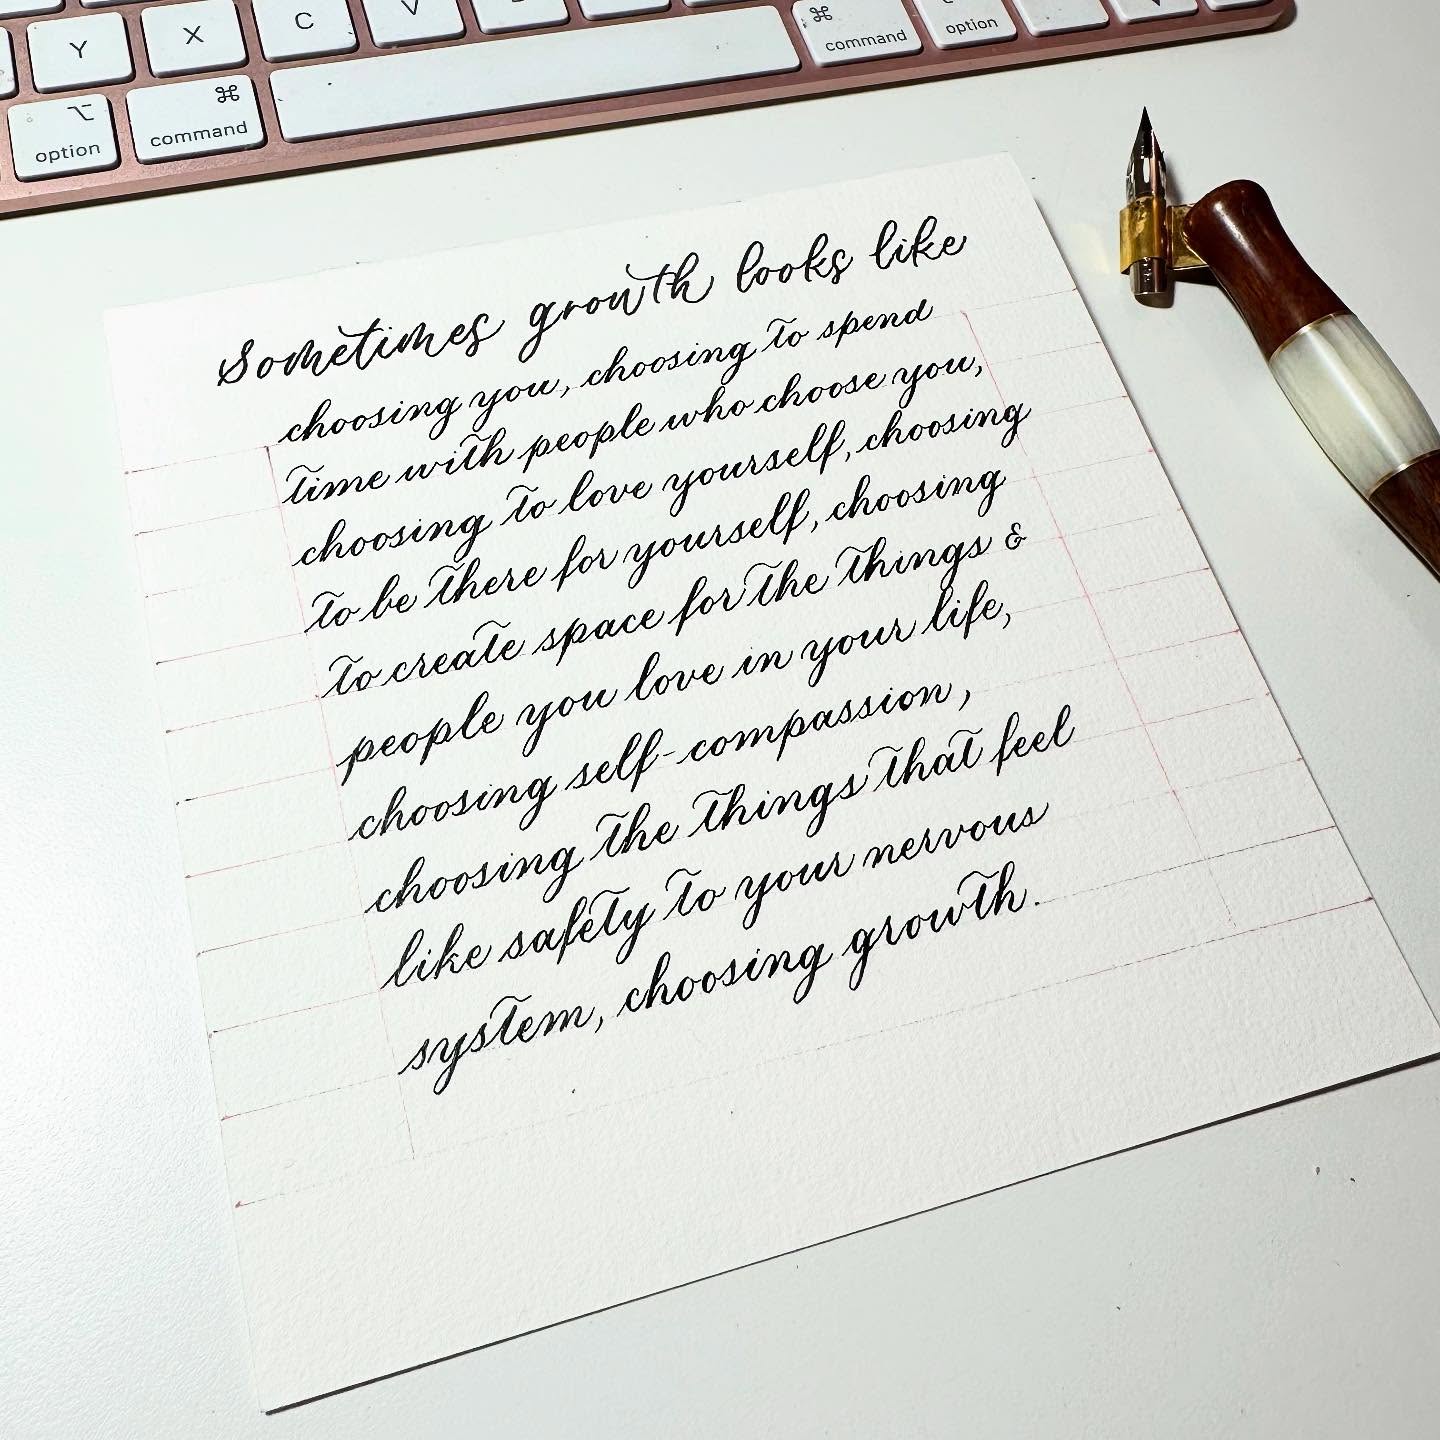 Y X C V
⌘ command option
⌥ option ⌘ command
Sometimes growth looks like
choosing you, choosing to spend
time with people who choose you,
choosing to love yourself, choosing
to be there for yourself, choosing
to create space for the things &
people you love in your life,
choosing self-compassion,
choosing the things that feel
like safety to your nervous
system, choosing growth.